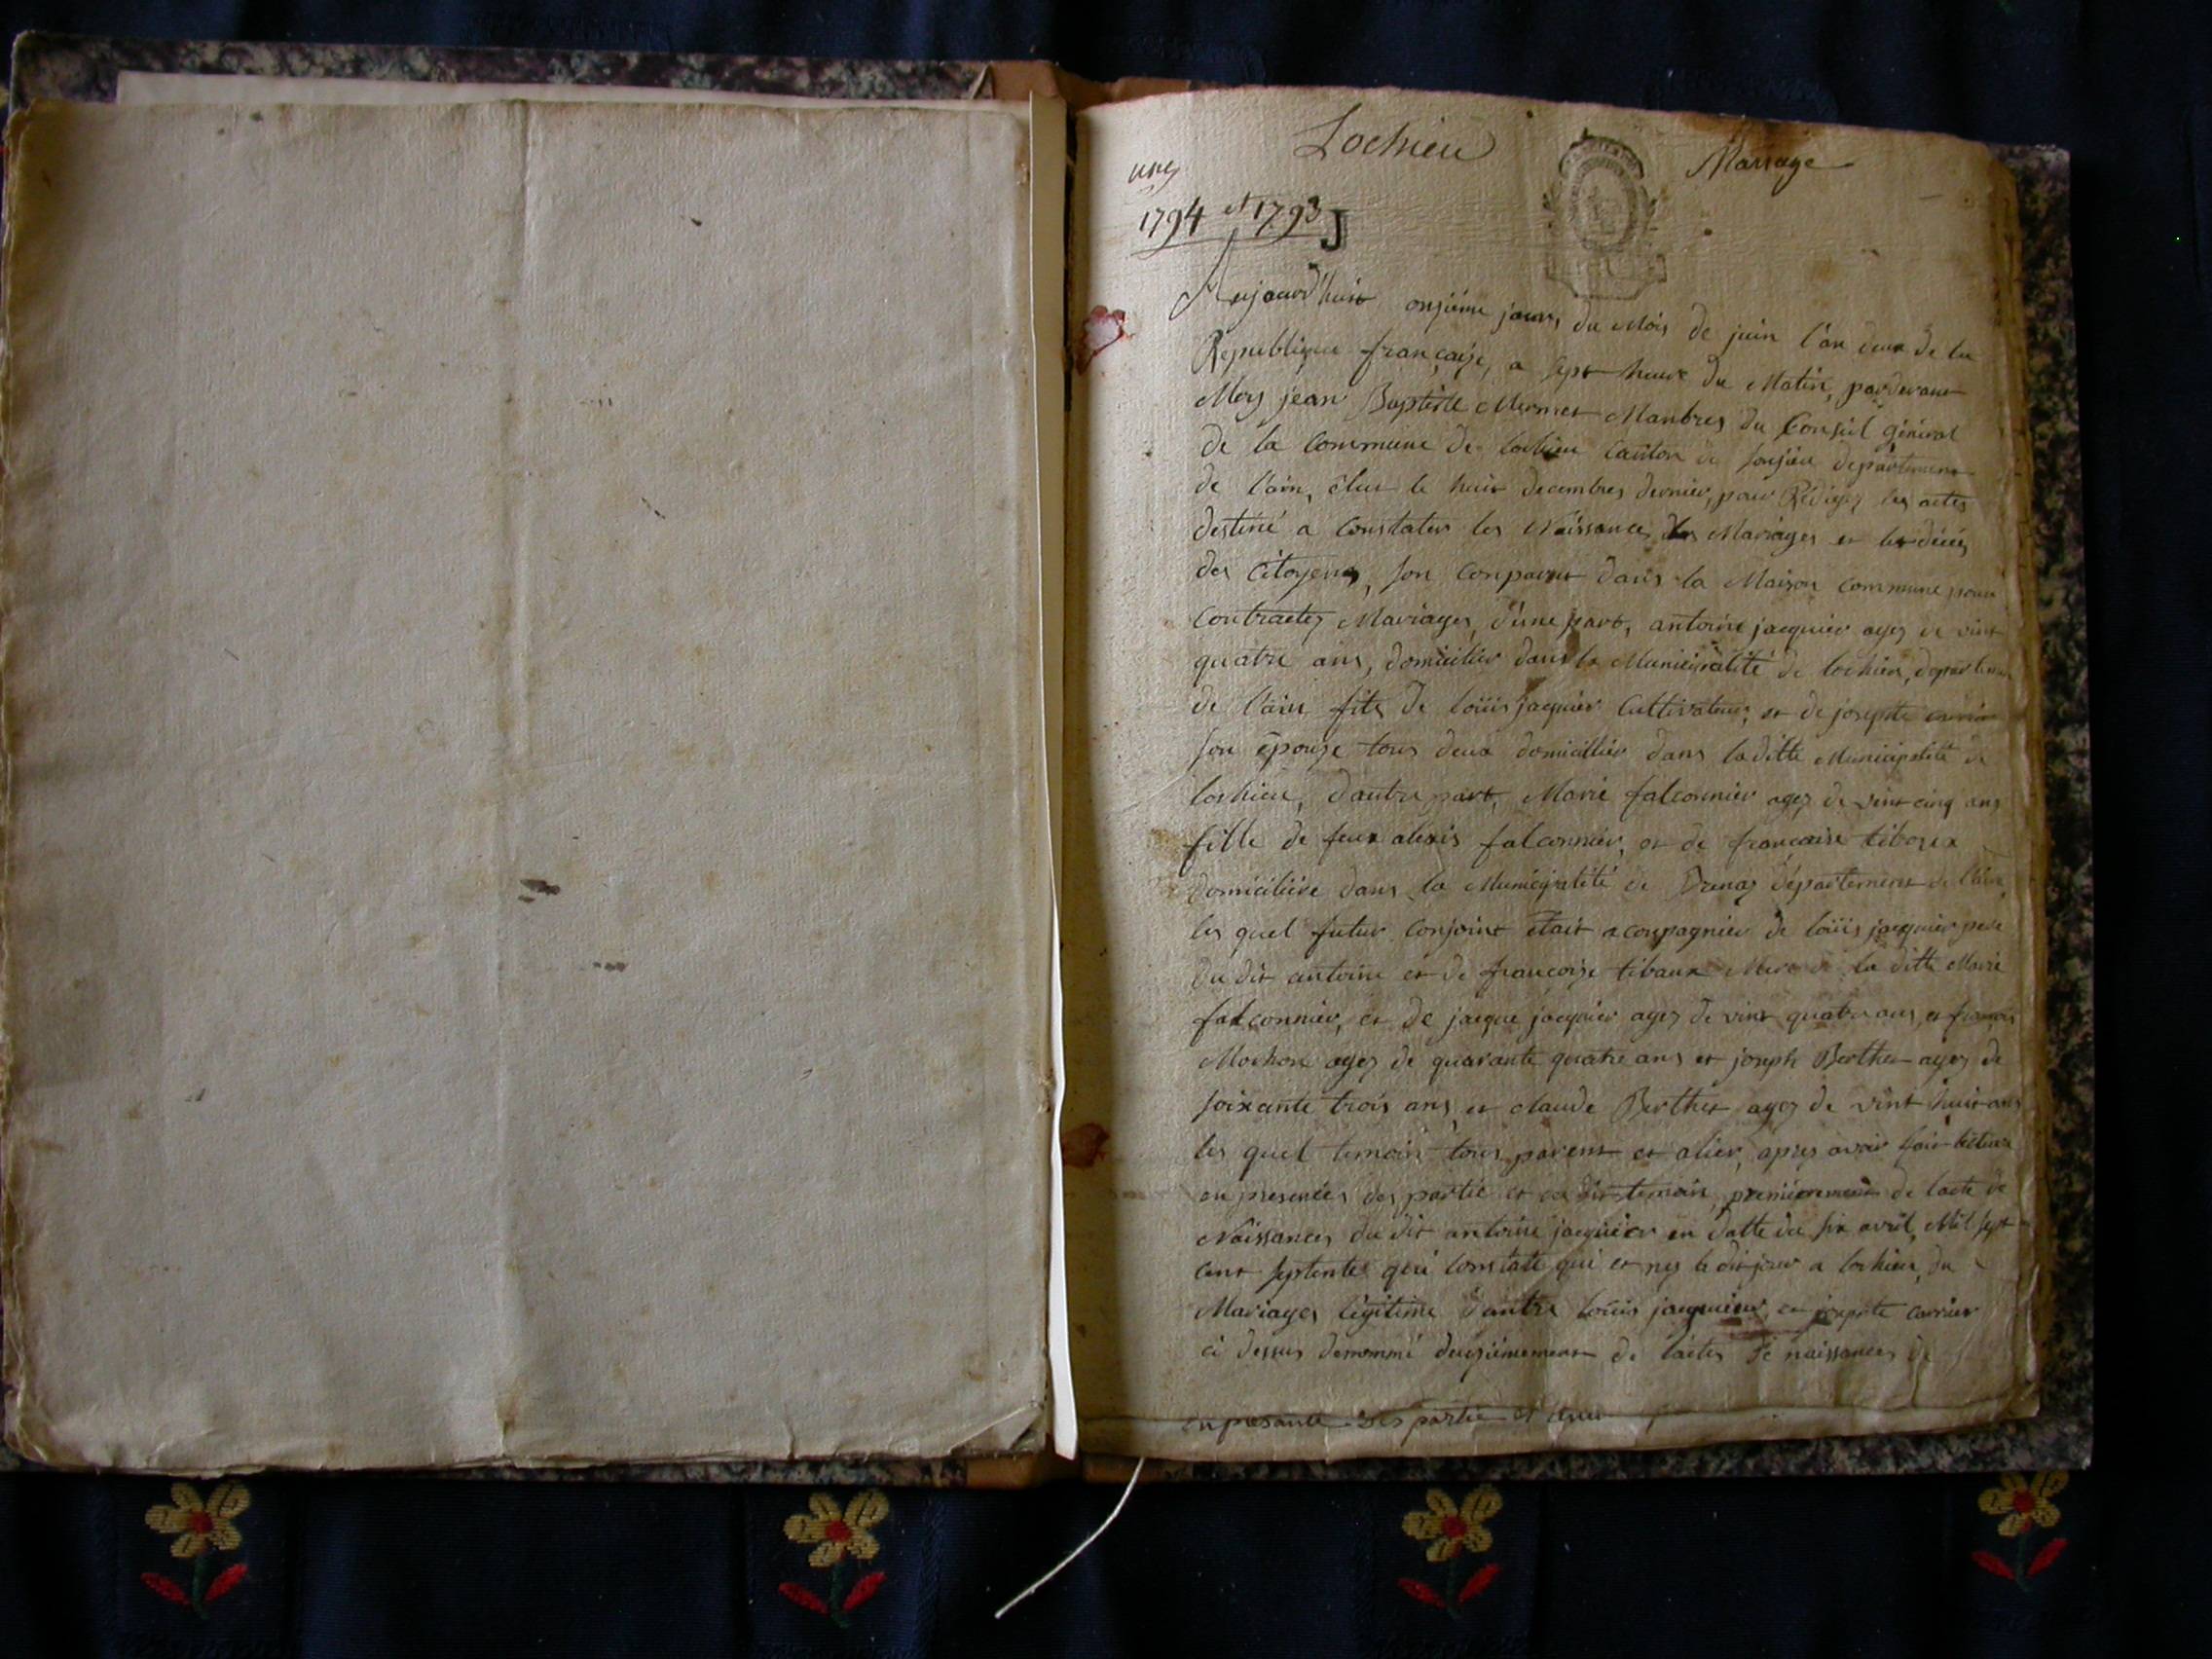 Lochieu
Mariage
1794 et 1793
Aujourd'huit onzième jours du Mois de juin l'an deux de la
Republique française, a sept heure du Matin, pardevant
Moy jean Baptiste Mermet Manbres du Conseil général
de la Commune de lochieu Canton de sonjieu departement
de l'ain, élue le huit decembres dernier, pour Rédigez les actes
destiné a Constater les Naissances des Mariages et les décés
des Citoyens, son conparut dans la Maison commune pour
Contractez Mariages, d'une part, antoine jacquier agez de vint
quatre ans, domicilier dans la Municipalité de lochieu, departement
de l'ain fils de loüis jaquier Cultivateur, et de josepte
son épouse tous deux domicillier dans laditte Municipalité de
lochieu, d'autre part, Marie falconnier agez de vint cinq ans
fille de feux alexis falconnier, et de francoise
domicilière dans la Municipalité de departement de l'ain
les quel futur conjoint était acompagnier de loüis jacquier pere
du dit antoine et de françoise tibaux Mere de la ditte Marie
falconnier, et de jacque jacquier agez de vint quatre ans, et francois
Mochon agez de quarante quatre ans et joseph Berthet agez de
soixante trois ans, et claude Berthet agez de vint huit ans
les quel temoin tous parent et alier, apres avoir fait lecture
en presences des partie et des dit temoin, premierement de lacte de
Naissances du dit antoine jacquier en datte du six avril, Mil sept
cent septente qui constate qui et nez le dit jour a lochieu, du
Mariages légitime d'antre loüis jacquier, et josepte carrier
ci dessus denommé deuzièmement de lactes de naissances de
en presance des partie et